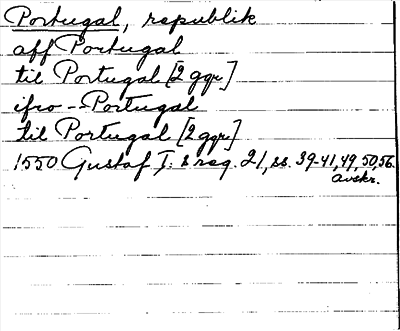 Portugal, republik
aff Portugal
til Portugal [2 ggr]
ifro - Portugal
til Portugal [2 ggr]
1550 Gustaf I:s reg. 21, ss. 39-41, 49, 50, 56.
avskr.